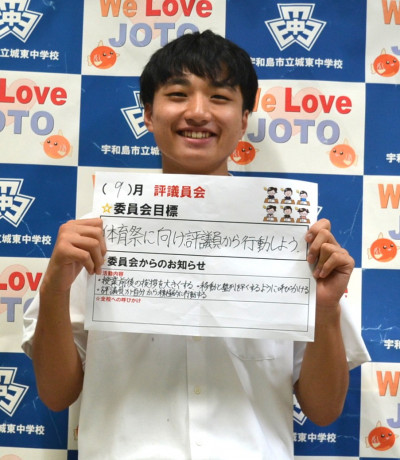 We Love
JOTO
宇和島市立城東中学校
We Love
JOTO
宇和島市立城東中学校
We Love
JOTO
We Love
JOTO
(9)月 評議員会
☆委員会目標
体育祭に向け評議員から行動しよう。
委員会からのお知らせ
活動内容
・授業前後の挨拶を大きくする ・移動と整列を早くするように呼びかける
・評議員が自分から積極的に行動する
※全校への呼びかけ
宇和島市立城東中学校
We Love
JOTO
宇和島市立城東中学校